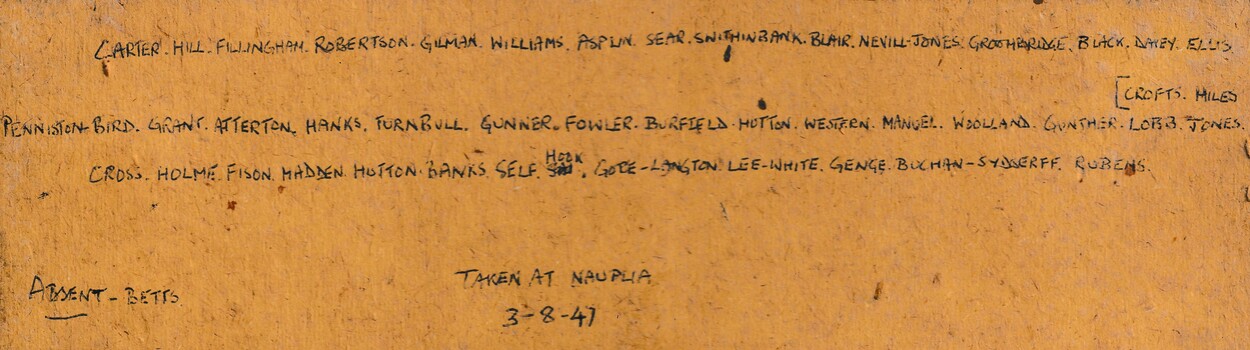 CARTER. HILL. FILLINGHAM. ROBERTSON. GILMAN. WILLIAMS. ASPLIN. SEAR. SMITHINBANK. BLAIR. NEVILL-JONES. GROOMBRIDGE. BLACK. DAVEY. ELLIS
[CROFTS. MILES
PENNISTON-BIRD. GRANT. ATTERTON. HANKS. TURNBULL. GUNNER. FOWLER. BURFIELD. HOTTON. WESTERN. MANUEL. WOOLLAND. GUNTHER. LOBB. JONES.
HOOK
CROSS. HOLME. FISON. MADDEN. HUTTON. BANKS. SELF. GORE-LANGTON. LEE-WHITE. GENGE. BUCHAN-SYDSERFF. RUBENS.
TAKEN AT NAUPLIA
ABSENT - BETTS.
3-8-47